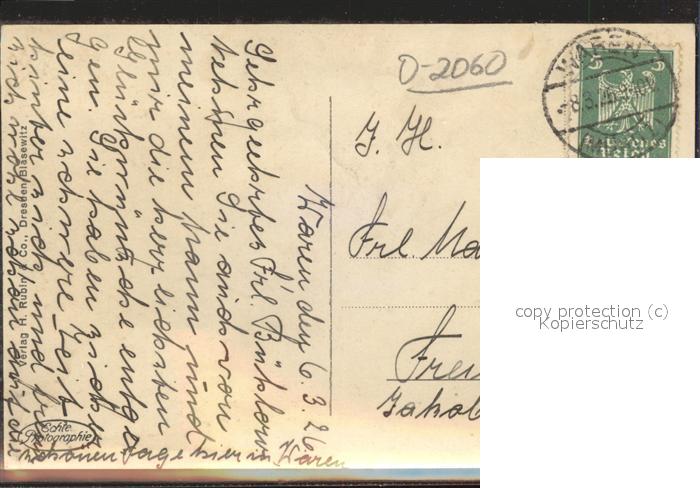 Waren den 6.3.26
Sehr geehrtes Frl. Bühlow
nehmen Sie auch von
meinem Mann und
mir die herzlichsten
Glückwünsche entge
gen. Sie haben
eine schwere Zeit
hinter sich, und
schönen Tage hier in Waren
Verlag H. Rubin & Co., Dresden-Blasewitz
Echte
Photographie
D-2060
WAREN
5
Deutsches
Reich
J. H.
Frl. Ma
Frei
Jakob
copy protection (c)
Kopierschutz